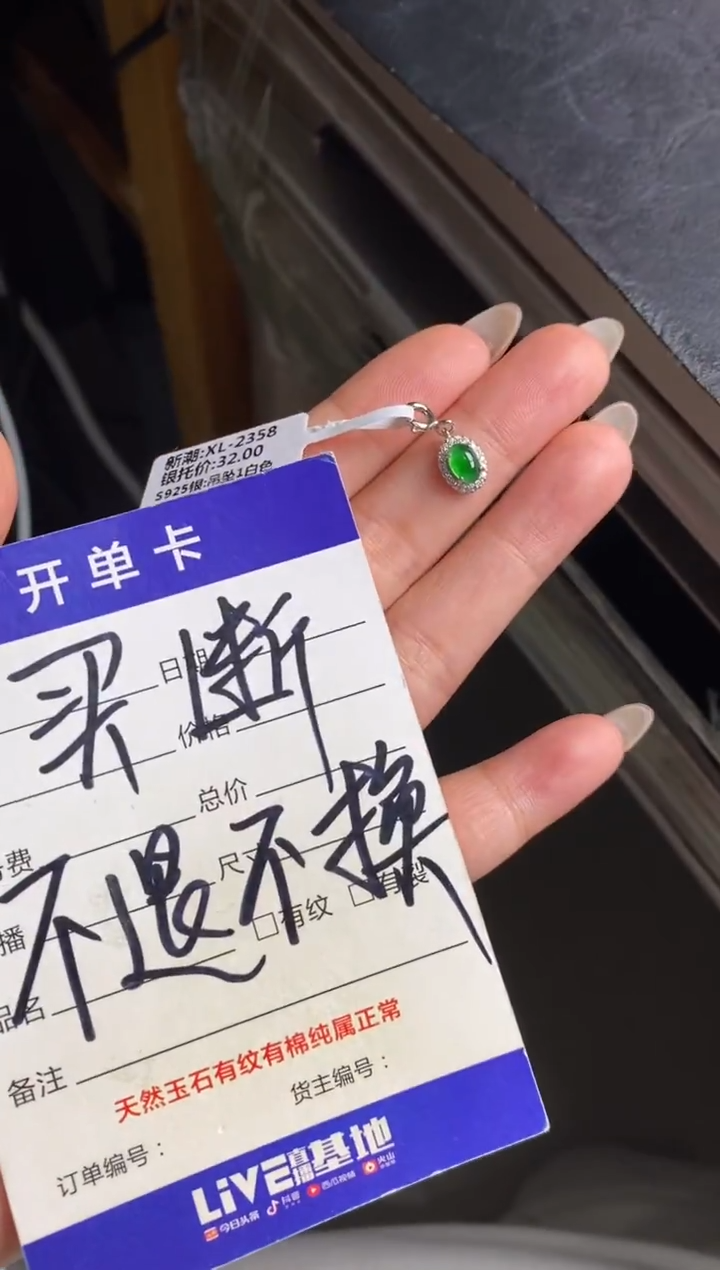 新潮:XL-2358
银托价:32.00
S925银:吊坠1白色
开单卡
日期
买断
价格
总价
费
尺寸
不退不换
播
□有纹 □有裂
品名
备注
天然玉石有纹有棉纯属正常
货主编号：
订单编号：
LIVE直播基地
今日头条 抖音 西瓜视频 火山